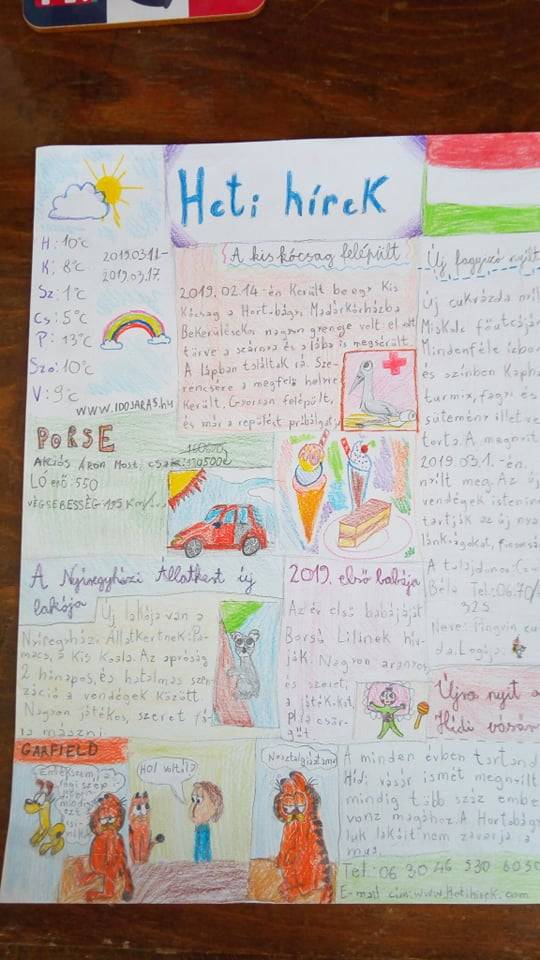 Heti hírek
H: 10°C
K: 8°C
Sz: 1°C
Cs: 5°C
P: 13°C
Szo: 10°C
V: 9°C
2019.03.11-
2019.03.17.
WWW.IDOJARAS.HU
A kis kócsag felépült
2019.02.14-én Került be egy Kis
Kócsag a Hortobágyi Madárkórházba
Bekerülésekor nagyon gyenge volt el
törve a szárnya és a lába is megsérült.
A lápban találtak rá. Sze-
rencsére a megfelelő helyre
Került. Gyorsan felépült,
és már a repülést próbálgatja
Új faggizó nyílt
Új cukrázda nyílt
Miskolc főutcáján
Mindenféle ízben
és színben Kapható
turmix, fagyi és
sütemény illetve
torta. A megnyitó
2019.03.1.-én.
nyílt meg. Az új
vendégek istenin
tartják az új nya
lánkságokat, finomság
A tulajdonos: Czu
Béla Tel.: 06.70/
325
Neve: Pingvin cu
da. Logója
PORSE
Akciós Áron Most. csak: 10500€
LÓ erő: 550
VÉGSEBESSÉG: 195 Km/
A Nyíregyházi Állatkert új
lakója
Új lakója van a
Nyíregyházi Állatkertnek: Pa-
macs, a Kis Koala. Az apróság
2 hónapos, és hatalmas szen
záció a vendégek között.
Nagyon játékos, szeret fá
ra mászni.
2019. első babája
Az év első babáját
Barsó Lilinek hív-
ják. Nagyon aranyos
és szeret,
a játékokat,
Pld csör-
gőt
Újra nyit a
Hídi vásár
A minden évben tartand
Hídi vásár ismét megnyílt
mindig több száz embe
vonz magához. A Hortobágy
luk lakóit nem zavarja a
Tel: 06 30 46 530 6050
E-mail cím: www.Hetihirek.com
GARFIELD
Hol voltál?
Nosztalgiáztam